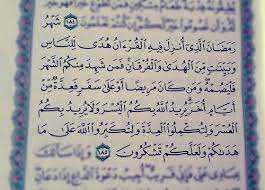 ١٨٤ شَهْرُ
رَمَضَانَ ٱلَّذِىٓ أُنزِلَ فِيهِ ٱلْقُرْءَانُ هُدًى لِّلنَّاسِ
وَبَيِّنَـٰتٍ مِّنَ ٱلْهُدَىٰ وَٱلْفُرْقَانِ فَمَن شَهِدَ مِنكُمُ ٱلشَّهْرَ
فَلْيَصُمْهُ وَمَن كَانَ مَرِيضًا أَوْ عَلَىٰ سَفَرٍ فَعِدَّةٌ مِّنْ
أَيَّامٍ أُخَرَ يُرِيدُ ٱللَّهُ بِكُمُ ٱلْيُسْرَ وَلَا يُرِيدُ بِكُمُ
ٱلْعُسْرَ وَلِتُكْمِلُوا۟ ٱلْعِدَّةَ وَلِتُكَبِّرُوا۟ ٱللَّهَ عَلَىٰ مَا
هَدَىٰكُمْ وَلَعَلَّكُمْ تَشْكُرُونَ ١٨٥ وَإِذَا سَأَلَكَ